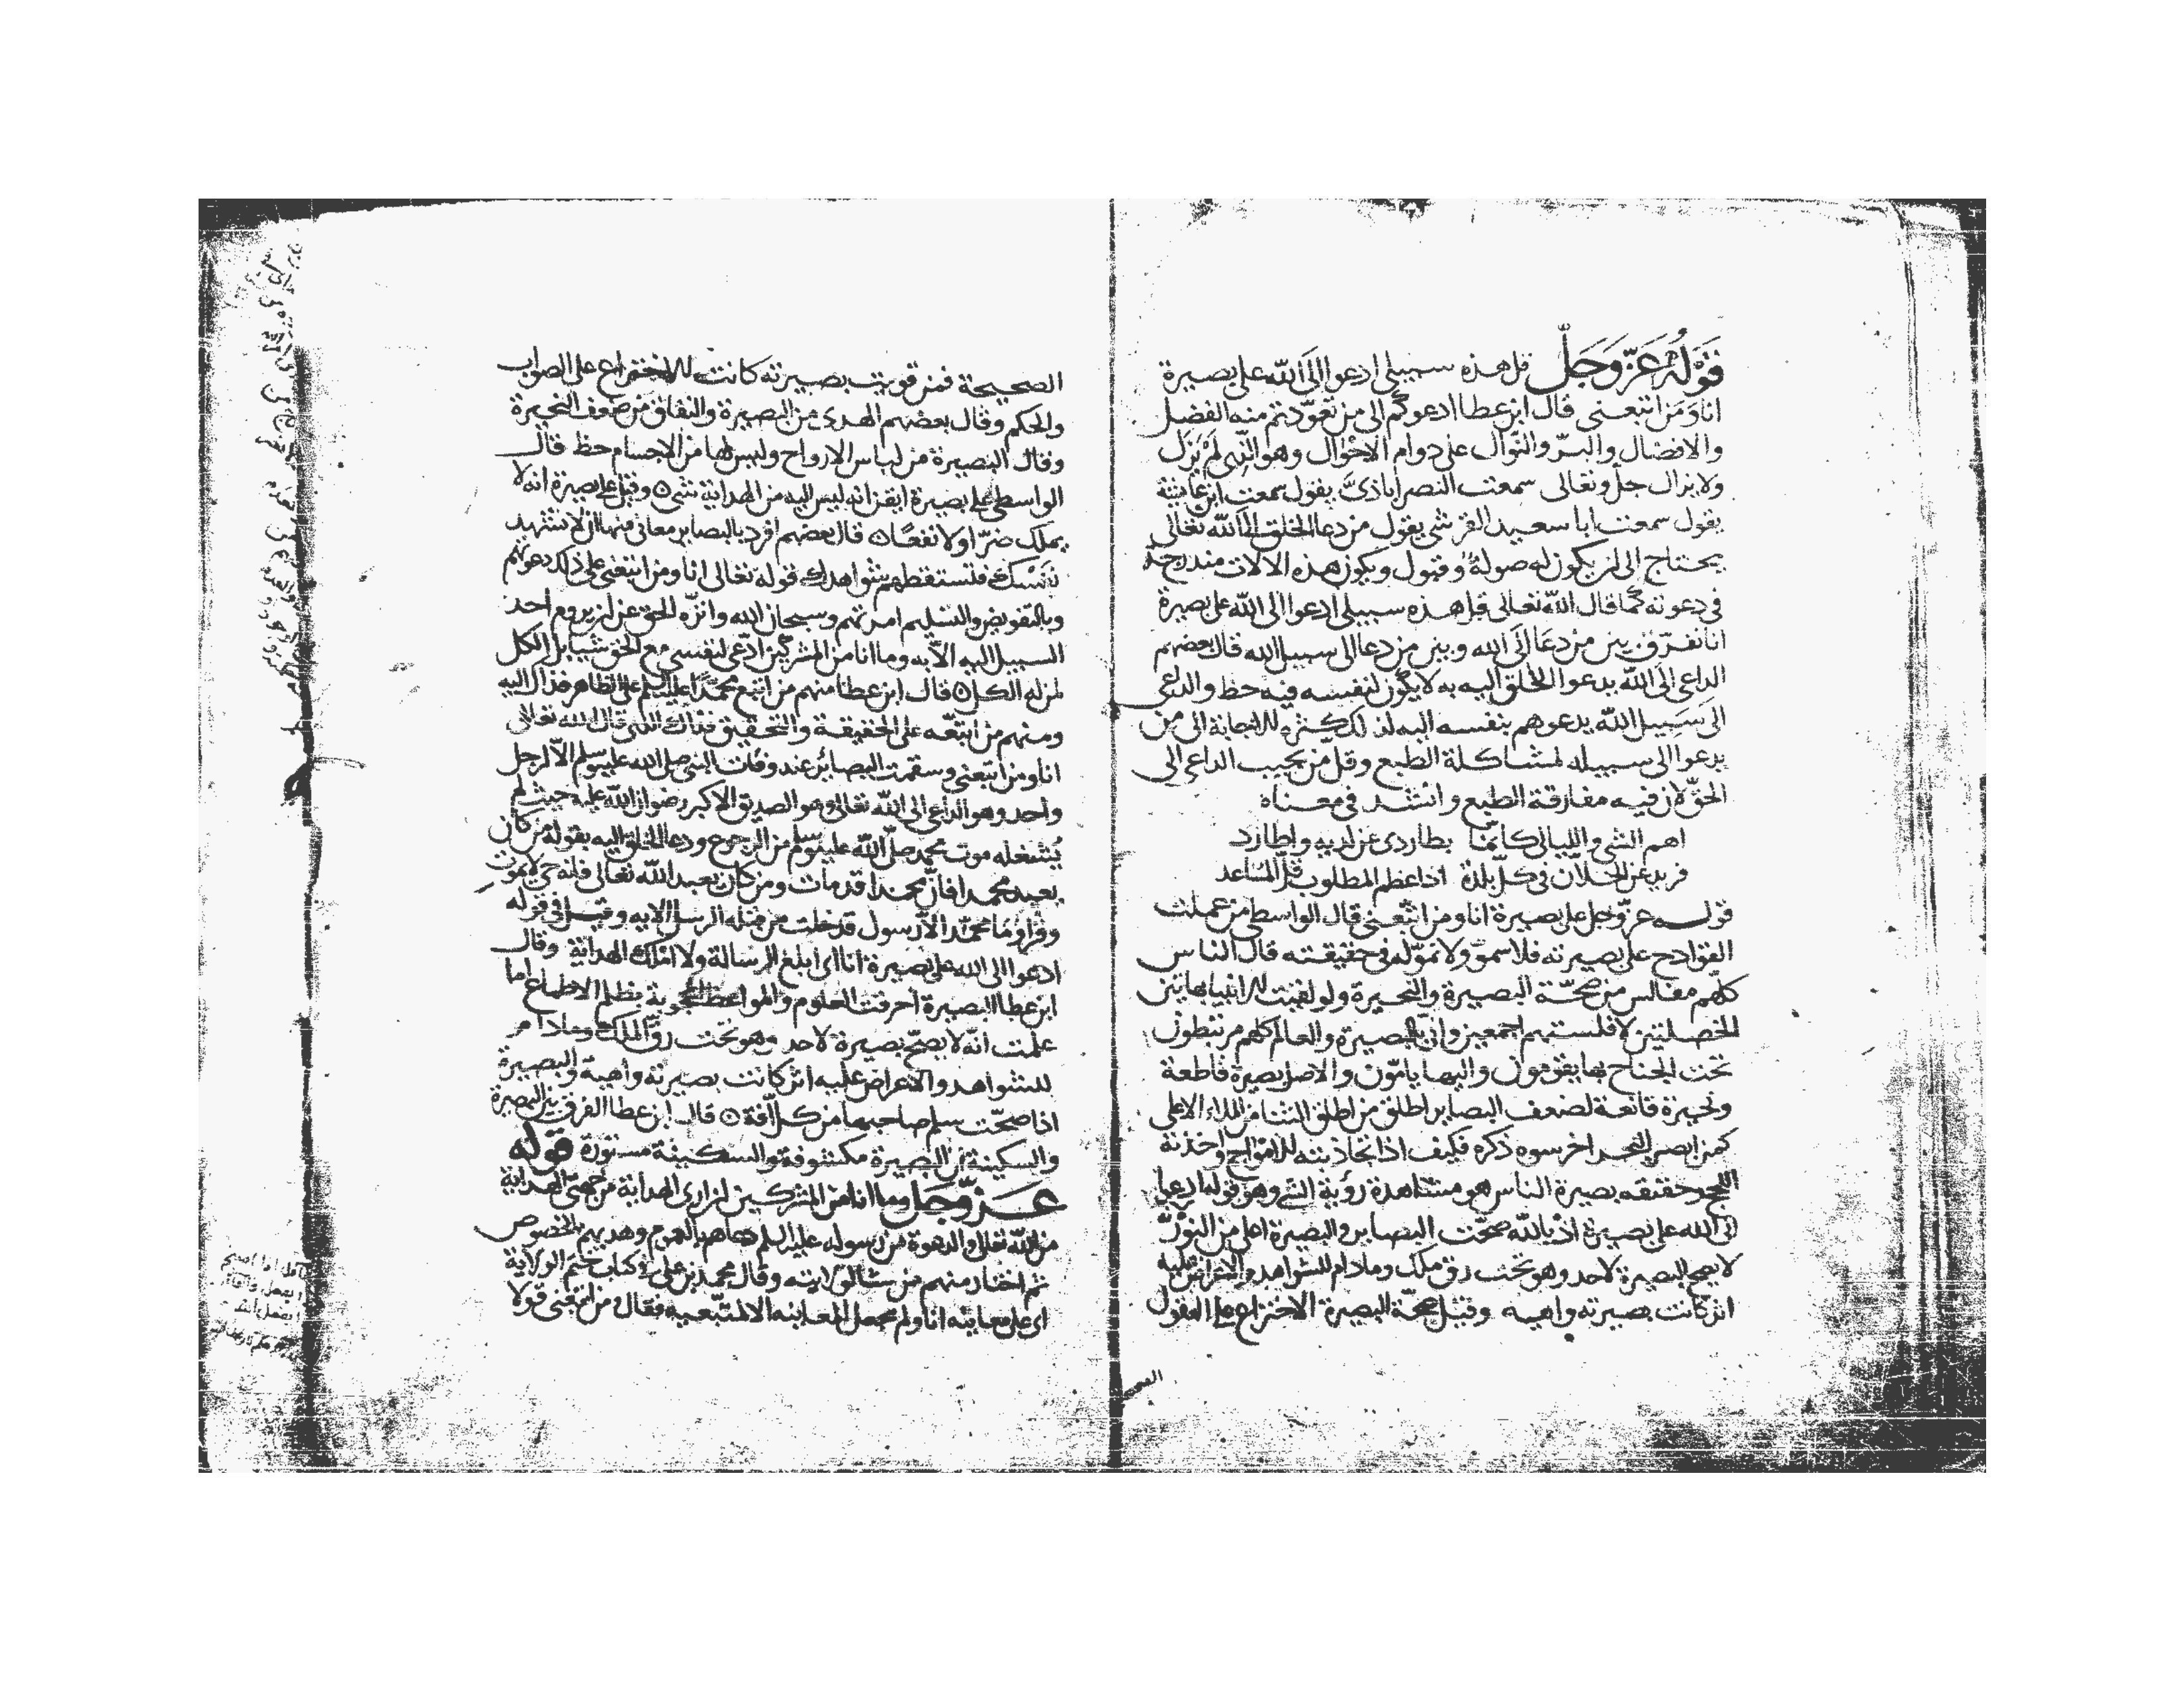 قَوْلُهُ عَزَّ وَجَلَّ قل هذه سبيلي ادعوا الَى الله على بصيرة
انا وَمَن اتبعنى قال ابن عطا ادعوكم الى من تعوّدتم منه الفضل
والافضال والبرّ والنوال على دوام الاحْوال وهو الّذى لَمْ يَزَل
ولا يزال جلّ وتعالى سمعت النصراباذىَّ يقول سمعت ابن عايشة
يقول سمعت ابا سعيد القرشى يقول من دعا الخلق الى الله تعالى
يحتاج الى ان يكون له صولة وقبول ويكون هذه الالات مندرجة
فى دعوته كما قال الله تعالى قل هذه سبيلى ادعوا الى الله على بصيرة
انا نفرّق بين من دعَا الَى الله وبين من دعا الى سبيل الله قال بعضهم
الداعى الَى الله يدعوا الخلق اليه به لا يكون لنفسه فيه حظ والداعى
الى سَبيل الله يدعوهم بنفسه اليه لذلك كثرة الاجابة الى من
يدعوا الى سبيله لمشاكلة الطبع وقلّ من يجيب الداعى الى
الحقّ لان فيه مفارقة الطبع وانشد فى معناه
اهم الشى والليالى كانّما يطاردنى عن لديه واطارد
فريد عن الخلّان فى كلّ بلدة اذا عظم المطلوب قلّ المساعد
قوله عزّ وجل على بصيرة انا ومن اتّبعنى قال الواسطى من عملت
القوادح على بصيرته فلا سموّ ولا نموّ له فى حقيقته قال الناس
كلّهم مفاليس من صحّة البصيرة والنحيرة ولو لقيت الانبيا بهاتين
الخصلتين لافلستهم اجمعين وانّ البصيرة والعالم كلهم مرتبطون
تحت الجناح بها يقومون واليها يامّون والاصل بصيرة قاطعة
ونحيزة قانعة لضعف البصاير اطلق من اطلق الثنا من الملاء الاعلى
كمن ابصر البحر اخرسوه ذكره فكيف اذا تجاذبته الامواج واخذته
اللجج حقيقه بصيرة الناس هو مشاهدة رؤية الشى وهو قوله ادعوا
الى الله على بصيرة اذ بالله صحّت البصاير والبصيرة اعلى من النورّ
لا يصح البصيرة لاحد وهو تحت رق ملك وما دام للشواهد والاعراض عليه
اثر كانت بصيرته واهيه وقيل صحّة البصيرة الاختراع على العقول
الصحيحة فمن قويت بصيرته كانت له الاختراع على الصواب
والحكم وقال بعضهم الهدى من البصيرة والنفاق من ضعف النحيزة
وقال البصيرة من لباس الارواح وليس لها من الاجسام حظ قال
الواسطى على بصيرة ايقن انه ليس اليه من الهداية شى وقيل على بصيرة انه لا
يملك ضرّا ولا نفعًا قال بعضهم افرد بالبصاير معانى منها ان لا تشهد
نفسك فتستقطهم شواهدك قوله تعالى انا ومن اتبعنى على ذلك دعوتهم
وبالتفويض والتسليم امرتهم وسبحان الله وانزّه الحق عن ان يروم احد
السبيل اليه الّا به وما انا من المشركين ادّعى لنفسى مع الحق شيا بل الكل
لمن له الكل قال ابن عطا منهم من اتبع محمدًا عليه السلم على الظاهر فذاك اليه
ومنهم من اتبعّه على الحقيقة والتحقيق فذاك الذى قال الله تعالى
انا ومن اتبعنى وسقمت البصائر عند وفات النبى صلى الله عليه وسلم الّا لرجل
واحد وهو الداعى الى الله تعالى وهو الصديق الاكبر رضوان الله عليه حيث لم
يُشغله موت محمد صلّى الله عليه وسلم من الرجوع ودعا الخلق اليه بقوله من كان
يعبد محمدا فانّ محمدا قد مات ومن كان يعبد الله تعالى فانه حىّ لا يموت
وقرا ومَا محمّد الّا رسول قد خلت من قبله الرسل الايه وقيل فى قوله
ادعوا الى الله على بصيرة انا اى ابلغ الرسالة ولا املك الهداية وقال
ابن عطا البصيرة احرقت العلوم والمواعظ بظلم الاطماع اما
علمت انّه لا يصحّ بصيرة لاحد وهو تحت رقّ الملك وما دام
للشواهد والاعراض عليه اثر كانت بصيرته واهية والبصيرة
اذا صحّت سلم صاحبها من كلّ آفة قال ابن عطا الفرق بين البصيرة
والسكينة انّ البصيرة مكشوفة والسكينة مستورة قوله
عَزّ وَجَلّ وما انا من المشركين ان ارى الهداية من جهتى الهداية
من الله تعالى والدعوة من رسوله عليه السلم دعاهم بالعموم وهديهم بالخصوص
ثم اختار منهم من شا لولايته وقال محمد بن على فى كتاب ختم الولاية
اى على معاينه انا ولم يجعل المعاينه الا لمتّبعيه فقال ومن اتبعنى قولا